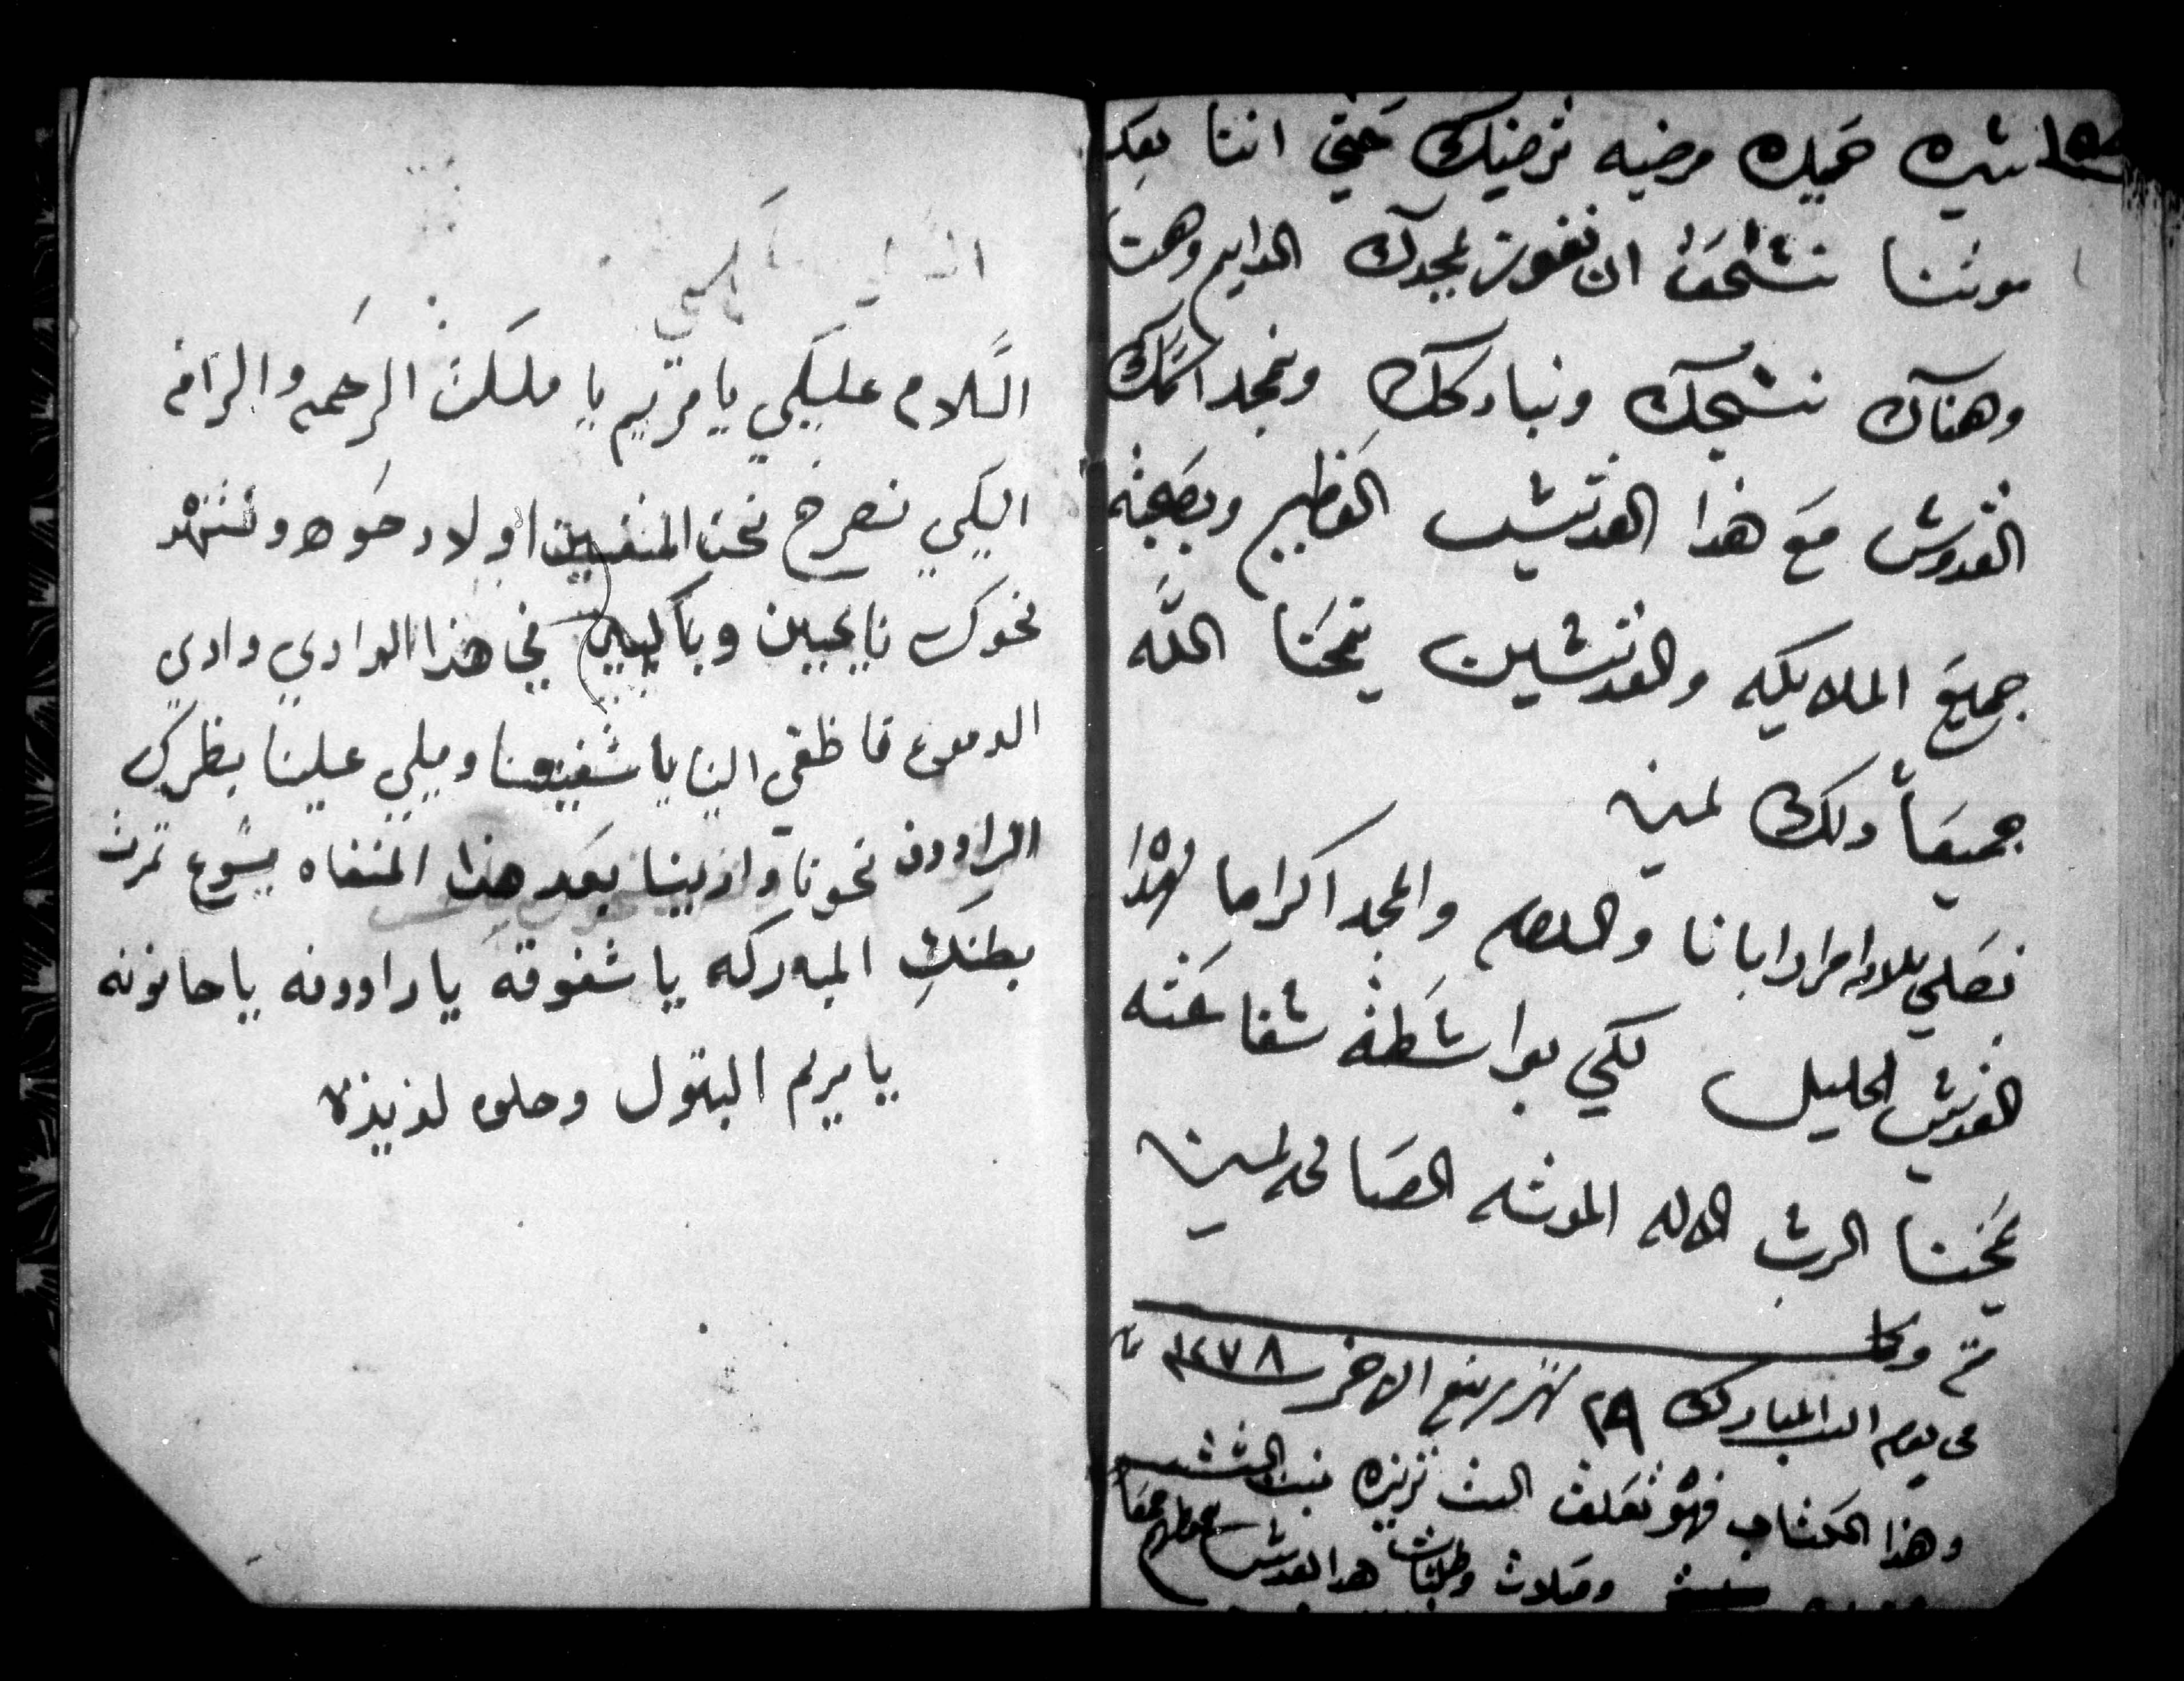 سيره حميده مرضيه ترضيك حتي اننا بعد
موتنا نستحق ان نفوز بمجدك الدايم وهنا
وهناك نسبحك ونباركك ونمجد اسمك
القدوس مع هذا القديس العظيم وبصحبة
جميع الملايكه والقديسين بنحنا الله
جميعاً ولك امين
نصلي ابانا والسلام والمجد اكراما لهذا
القديس الجليل لكي بواسطة شفاعته
يمنحنا الرب الاله الموته الصالحه امين
تم وكمل
في يوم المبارك ٢٩ شهر ربيع الاخر ١٢٧٨
وهذا الكتاب فهو تعلق الست تريزه بنت
وصلات وطلبات هذا القديس تكون معها
السلام عليكي يا مريم يا ملكت الرحمه والرافه
اليكي نصرخ نحن المنفيين اولاد حوه ونتنهد
نحوك نايحين وباكيين في هذا الوادي وادي
الدموع فاظقي الينا يا شفيعتنا وميلي علينا بنظرك
الراووف نحونا وارينا بعد هذا المنفاه يسوع ثمرت
بطنكِ المباركه يا شفوقه يا راووفه يا حانونه
يا مريم البتول وحلوه لذيذه